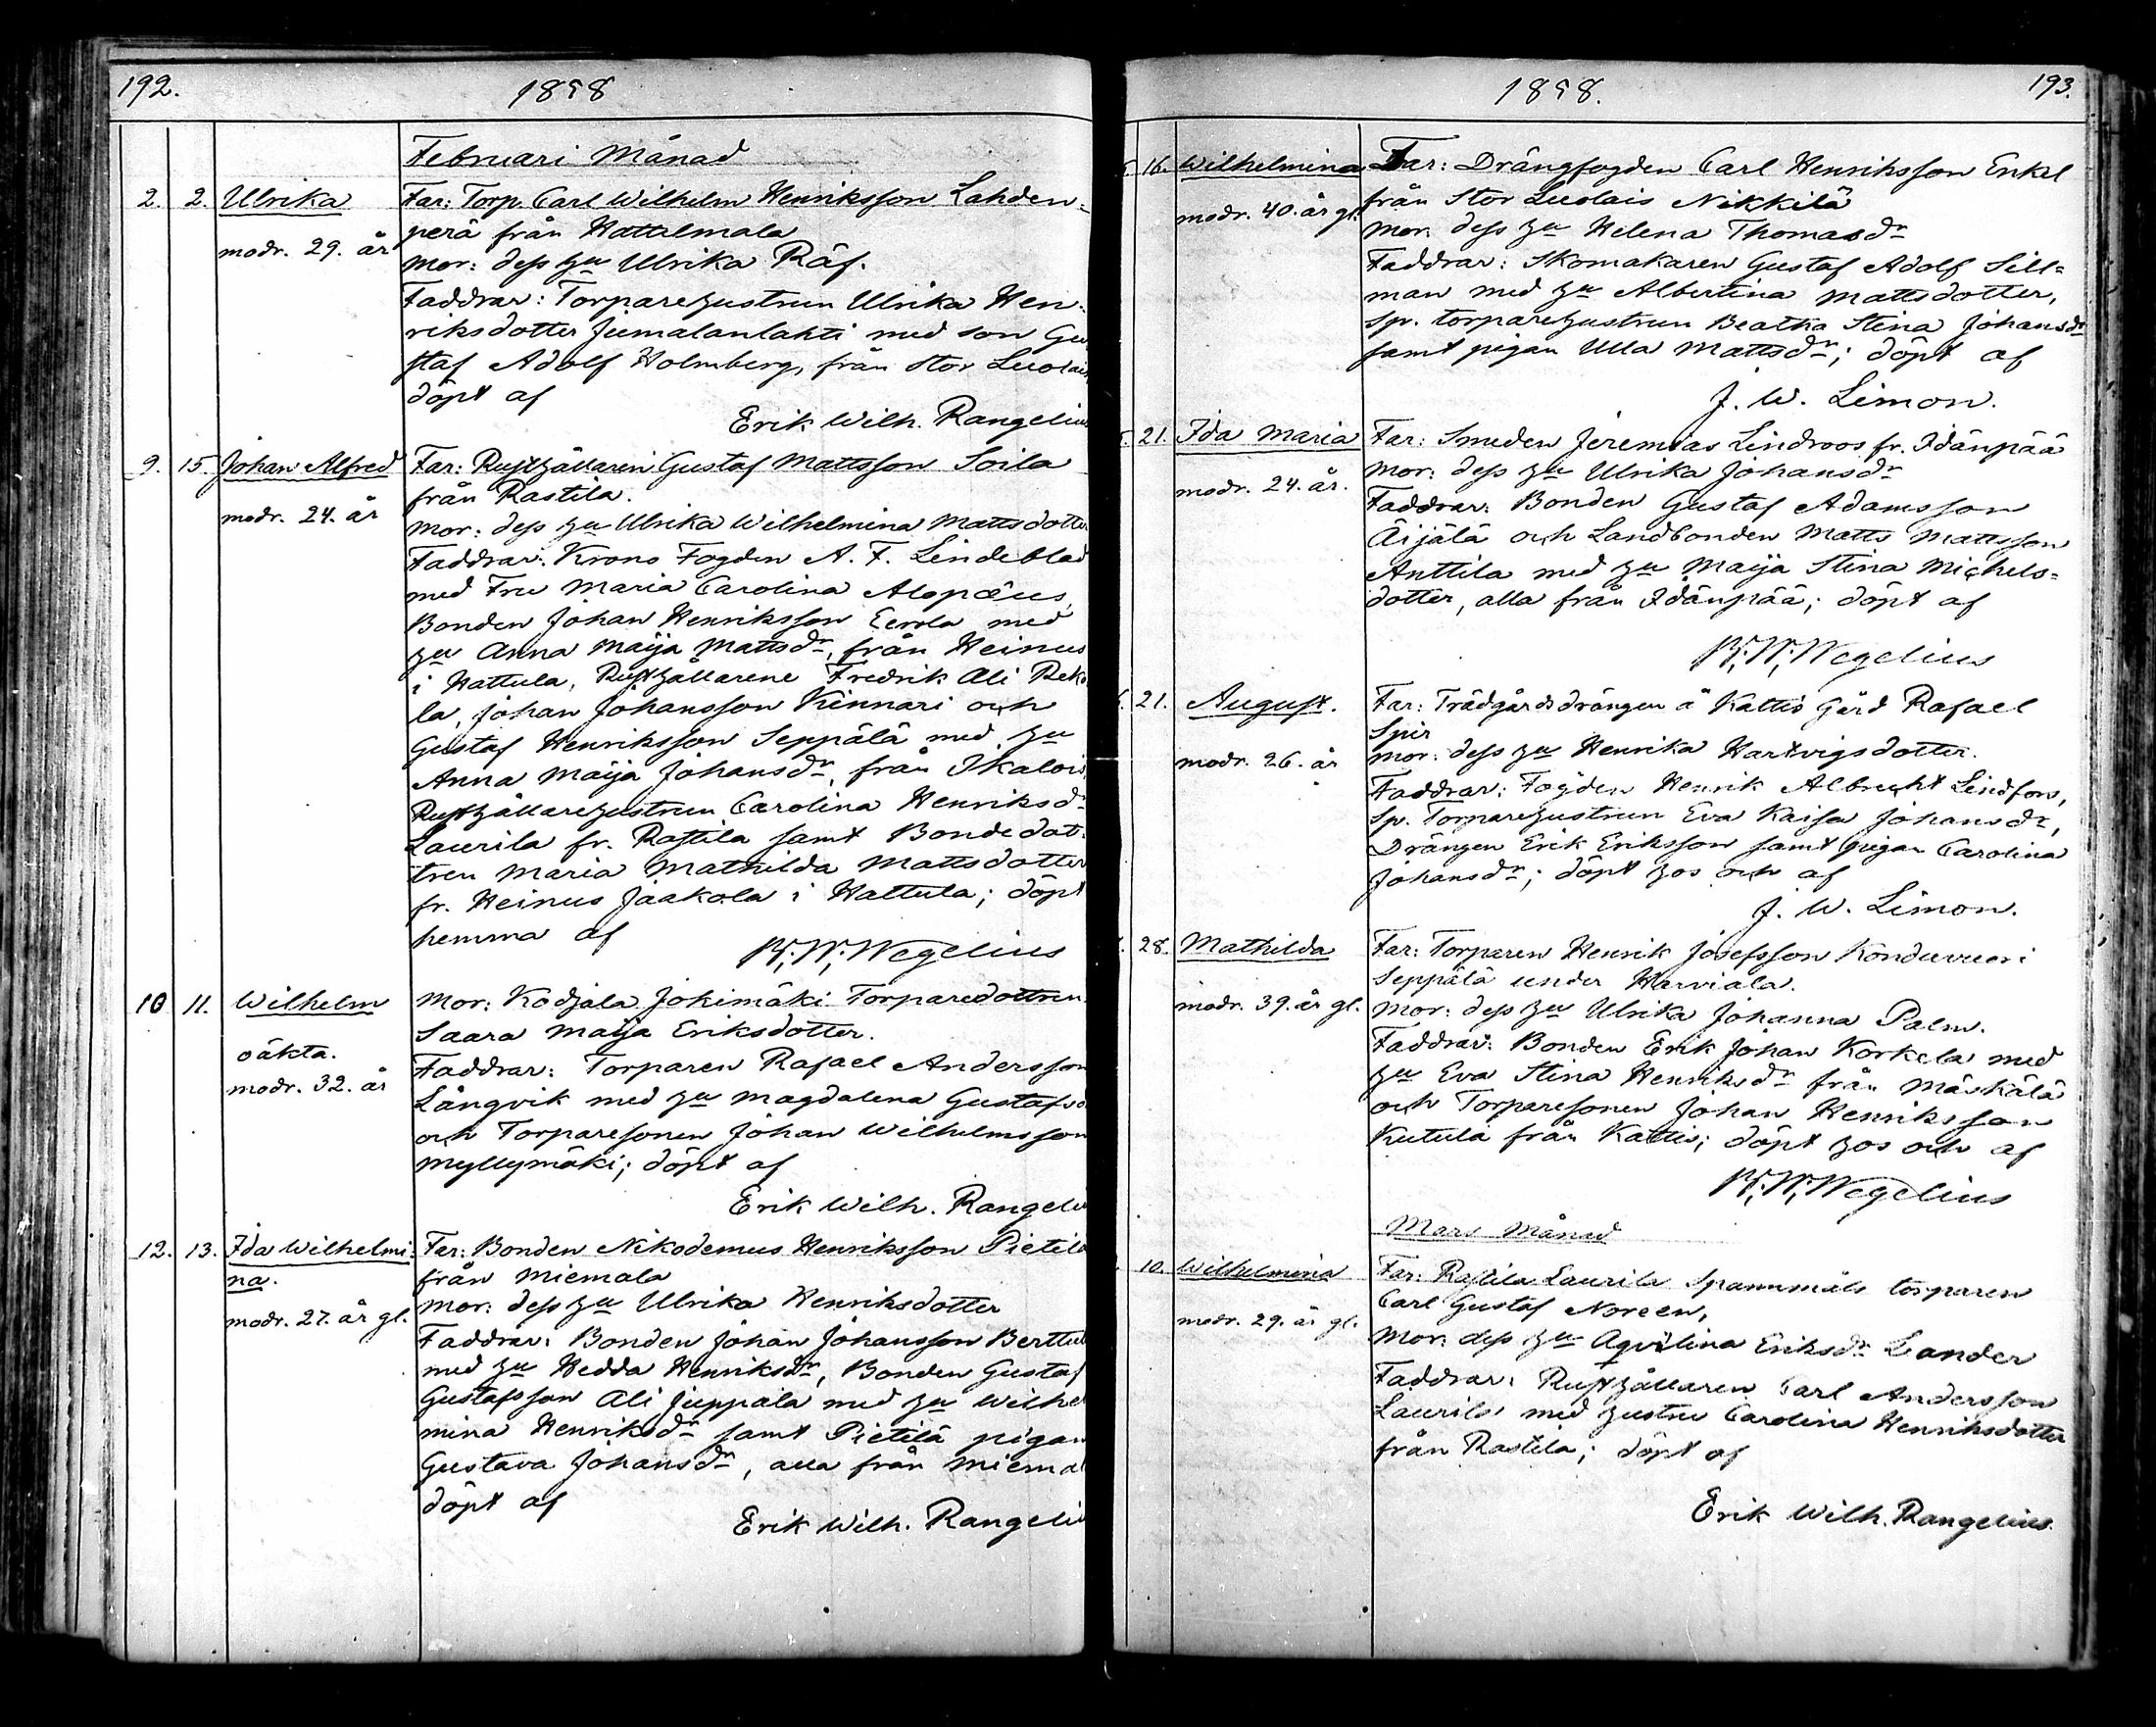 192.
1858
Februari Månad
2. 2. Ulrika
modr. 29. år
Far: Torp. Carl Wilhelm Henriksson Lahden=
perä från Hattelmala
Mor: dess hu Ulrika Räf.
Faddrar: Torparehustrun Ulrika Hen=
riksdotter Jumalanlahti med son Gu
staf Adolf Holmberg, från Stor Luolais
döpt af
Erik Wilh. Rangelius
9. 15. Johan Alfred
modr. 24. år
Far: Rusthållaren Gustaf Mattsson Soila
från Rastila.
Mor: dess hu Ulrika Wilhelmina Mattsdotter
Faddrar: Krono Fogden A. F. Lindeblad
med Fru Maria Carolina Alopæus,
Bonden Johan Henriksson Eerola med
hu Anna Maija Mattsdr, från Heinus
i Hattula, Rusthållarene Fredrik Ali Reko
la, Johan Johansson Kinnari och
Gustaf Henriksson Seppälä med hu
Anna Maija Johansdr, från Ikalois
Rusthållarehustrun Carolina Henriksdr
Laurila fr. Rastila samt Bondedot
tren Maria Mathilda Mattsdotter
fr. Heinus Jaakola i Hattula; döpt
hemma af
Wegelius
10 11. Wilhelm
oäkta.
modr. 32. år
Mor: Kodjala Jokimäki Torparedottren
Saara Maija Eriksdotter.
Faddrar: Torparen Rafael Andersson
Långvik med hu Magdalena Gustafsd
och Torparesonen Johan Wilhelmsson
Myllymäki; döpt af
Erik Wilh. Rangeli
12. 13. Ida Wilhelmi=
na.
modr. 27. år gl.
Far: Bonden Nikodemus Henriksson Pietilä
från Miemala
Mor: dess hu Ulrika Henriksdotter
Faddrar: Bonden Johan Johansson Berttul
med hu Hedda Henriksdr, Bonden Gustaf
Gustafsson Ali Juppala med hu Wilhel
mina Henriksdr samt Pietilä pigan
Gustava Johansdr, alla från Miemal
döpt af
Erik Wilh. Rangeli
1858.
193.
16. Wilhelmina
modr. 40. år gl.
Far: Drängfogden Carl Henriksson Enkel
från Stor Luolais Nikkilä
Mor dess hu Helena Thomasdr
Faddrar: Skomakaren Gustaf Adolf Sill=
man med hu Albertina Mattsdotter,
Sp. torparehustrun Beatha Stina Johansdr
samt pigan Ulla Mattsdr; döpt af
J. W. Limon.
21. Ida Maria
modr. 24. år.
Far: Smeden Jeremias Lindroos fr. Idänpää
Mor: dess hu Ulrika Johansdr
Faddrar: Bonden Gustaf Adamsson
Äijälä och Landbonden Matts Mattsson
Anttila med hu Maija Stina Michels=
dotter, alla från Idänpää; döpt af
Wegelius
21. August.
modr. 26. år
Far: Trädgårdsdrängen å Kattis Gård Rafael
Spir
Mor: dess hu Henrika Hartvigsdotter.
Faddrar: Fogden Henrik Albrecht Lindfors,
Sp. Torparehustrun Eva Kaisa Johansdr,
Drängen Erik Eriksson samt pigan Carolina
Johansdr; döpt hos och af
J. W. Limon.
28. Mathilda
modr. 39. år gl.
Far: Torparen Henrik Josefsson Konduvuori
Seppälä under Harviala.
Mor: dess hu Ulrika Johanna Palm.
Faddrar: Bonden Erik Johan Korkela med
hu Eva Stina Henriksdr från Mäskälä
och Torparesonen Johan Henriksson
Kutula från Kattis; döpt hos och af
Wegelius
Mars Månad
10. Wilhelmina
modr. 29. år gl.
Far: Rastila Laurila Spannmåls torparen
Carl Gustaf Noreen,
Mor: dess hu Aqvilina Eriksdr Lander
Faddrar: Rusthållaren Carl Andersson
Laurila med hustru Carolina Henriksdotter
från Rastila; döpt af
Erik Wilh. Rangelius.